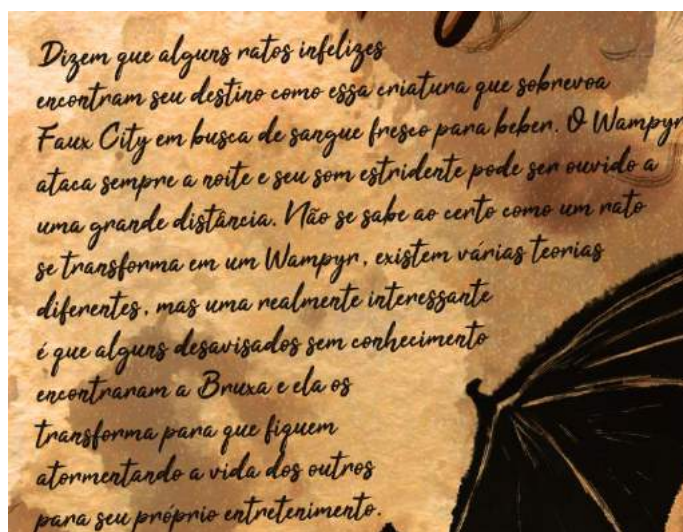 Dizem que alguns ratos infelizes
encontram seu destino como essa criatura que sobrevoa
Faux City em busca de sangue fresco para beber. O Wampyr
ataca sempre a noite e seu som estridente pode ser ouvido a
uma grande distância. Não se sabe ao certo como um rato
se transforma em um Wampyr, existem várias teorias
diferentes, mas uma realmente interessante
é que alguns desavisados sem conhecimento
encontraram a Bruxa e ela os
transforma para que fiquem
atormentando a vida dos outros
para seu próprio entretenimento.